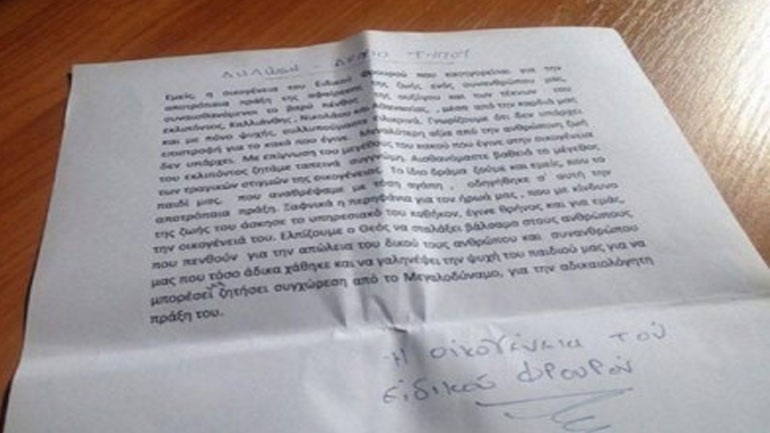 ΔΗΛΩΣΗ - ΔΕΛΤΙΟ ΤΥΠΟΥ
Εμείς, η οικογένεια του Ειδικού Φρουρού που κατηγορείται για την
αποτρόπαια πράξη της αφαίρεσης της ζωής ενός συνανθρώπου μας,
συναισθανόμενοι το βαρύ πένθος της συζύγου και των τέκνων του
εκλιπόντος, Καλλιάνθης, Νικολάου και , μέσα από την καρδιά μας
και με πόνο ψυχής, συλλυπούμαστε ειλικρινά. Γνωρίζουμε ότι δεν υπάρχει
επιστροφή για το κακό που έγινε. Μεγαλύτερη αξία από την ανθρώπινη ζωή
δεν υπάρχει. Με επίγνωση του μεγέθους του κακού που έγινε στην οικογένεια
του εκλιπόντος ζητάμε ταπεινά συγγνώμη. Αισθανόμαστε βαθειά το μέγεθος
των τραγικών στιγμών της οικογένειας. Το ίδιο δράμα ζούμε και εμείς, που το
παιδί μας, που αναθρέψαμε με τόση αγάπη , οδηγήθηκε σ' αυτή την
αποτρόπαια πράξη. Ξαφνικά η περηφάνια για τον ήρωά μας , που με κίνδυνο
της ζωής του άσκησε το υπηρεσιακό του καθήκον, έγινε θρήνος και για εμάς,
την οικογένειά του. Ελπίζουμε ο Θεός να σταλάξει βάλσαμο στους ανθρώπους
που πενθούν για την απώλεια του δικού τους ανθρώπου και συνανθρώπου
μας που τόσο άδικα χάθηκε και να γαληνέψει την ψυχή του παιδιού μας για να
μπορέσει να ζητήσει συγχώρεση από το Μεγαλοδύναμο, για την αδικαιολόγητη
πράξη του.
Η οικογένεια του
ειδικού φρουρού